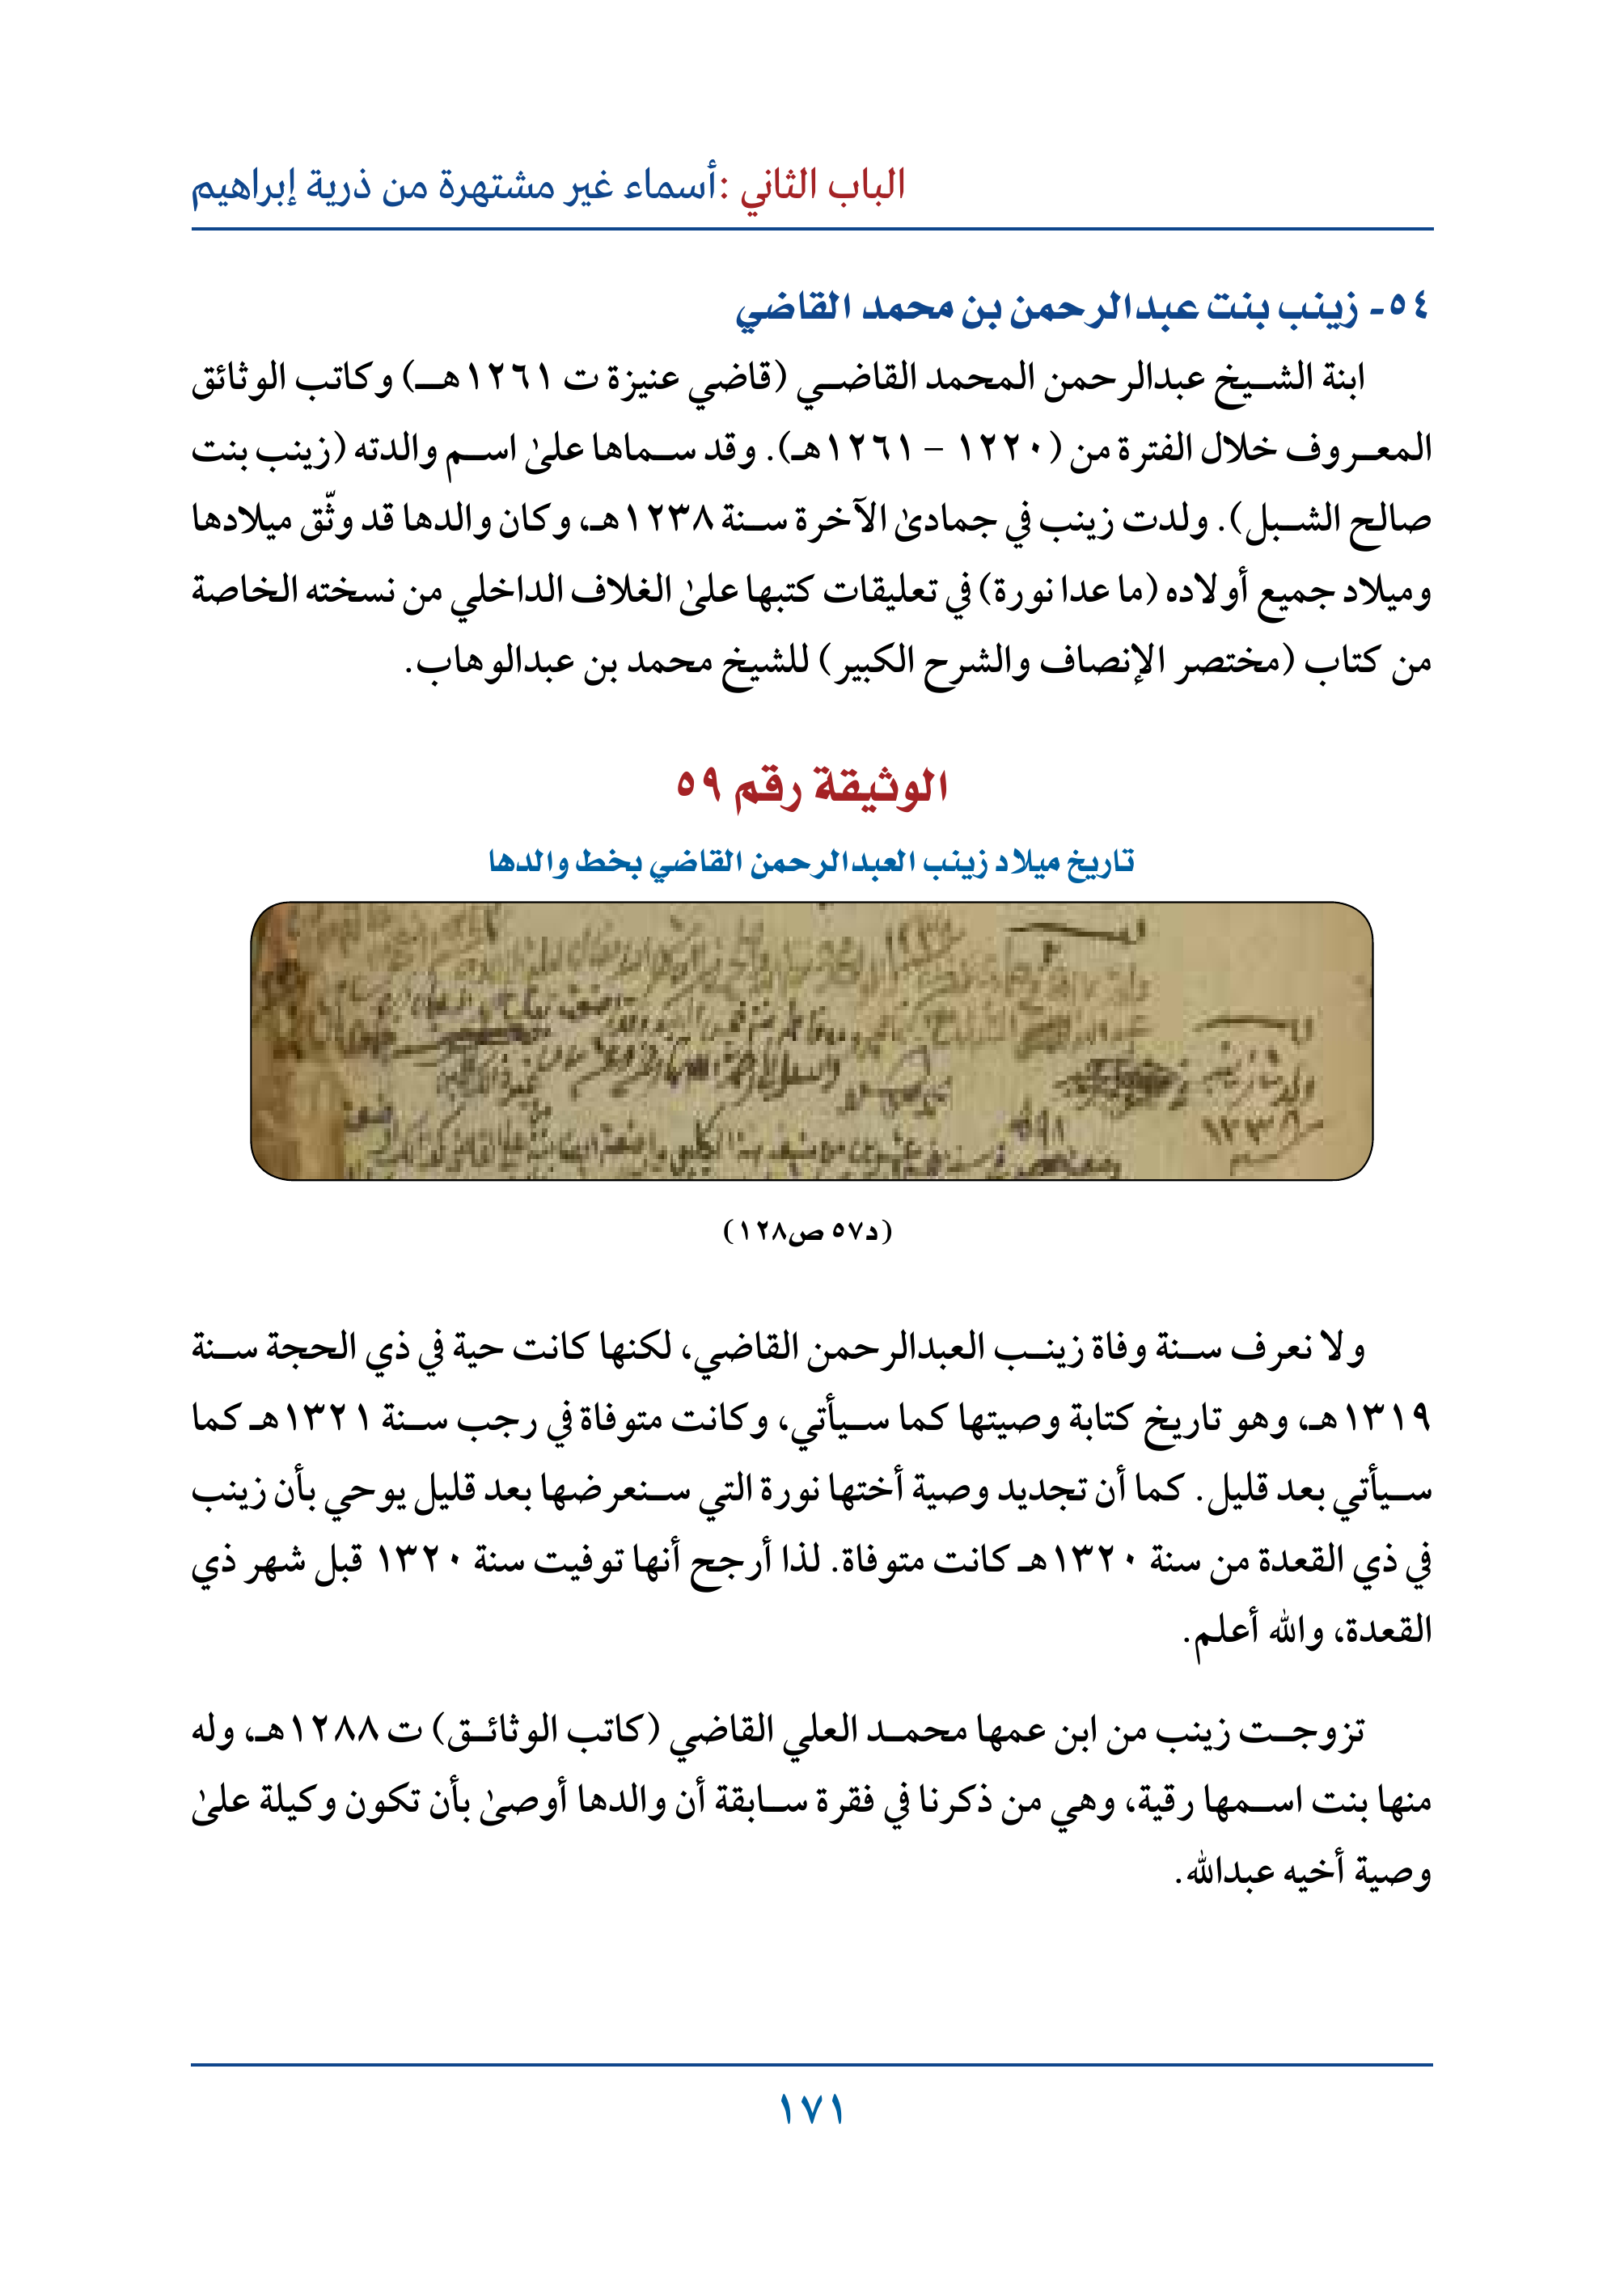 الباب الثاني :أسماء غير مشتهرة من ذرية إبراهيم
٥٤- زينب بنت عبدالرحمن بن محمد القاضي
ابنة الشيخ عبدالرحمن المحمد القاضي (قاضي عنيزة ت ١٢٦١هـ) وكاتب الوثائق
المعروف خلال الفترة من (١٢٢٠ – ١٢٦١هـ). وقد سماها علىٰ اسم والدته (زينب بنت
صالح الشبل). ولدت زينب في جمادىٰ الآخرة سنة ١٢٣٨هـ، وكان والدها قد وثّق ميلادها
وميلاد جميع أولاده (ما عدا نورة) في تعليقات كتبها علىٰ الغلاف الداخلي من نسخته الخاصة
من كتاب (مختصر الإنصاف والشرح الكبير) للشيخ محمد بن عبدالوهاب.
الوثيقة رقم ٥٩
تاريخ ميلاد زينب العبدالرحمن القاضي بخط والدها
١٢٣٨
(د٥٧ ص١٢٨)
ولا نعرف سنة وفاة زينب العبدالرحمن القاضي، لكنها كانت حية في ذي الحجة سنة
١٣١٩هـ، وهو تاريخ كتابة وصيتها كما سيأتي، وكانت متوفاة في رجب سنة ١٣٢١هـ كما
سيأتي بعد قليل. كما أن تجديد وصية أختها نورة التي سنعرضها بعد قليل يوحي بأن زينب
في ذي القعدة من سنة ١٣٢٠هـ كانت متوفاة. لذا أرجح أنها توفيت سنة ١٣٢٠ قبل شهر ذي
القعدة، والله أعلم.
تزوجت زينب من ابن عمها محمد العلي القاضي (كاتب الوثائق) ت ١٢٨٨هـ، وله
منها بنت اسمها رقية، وهي من ذكرنا في فقرة سابقة أن والدها أوصىٰ بأن تكون وكيلة علىٰ
وصية أخيه عبدالله.
١٧١